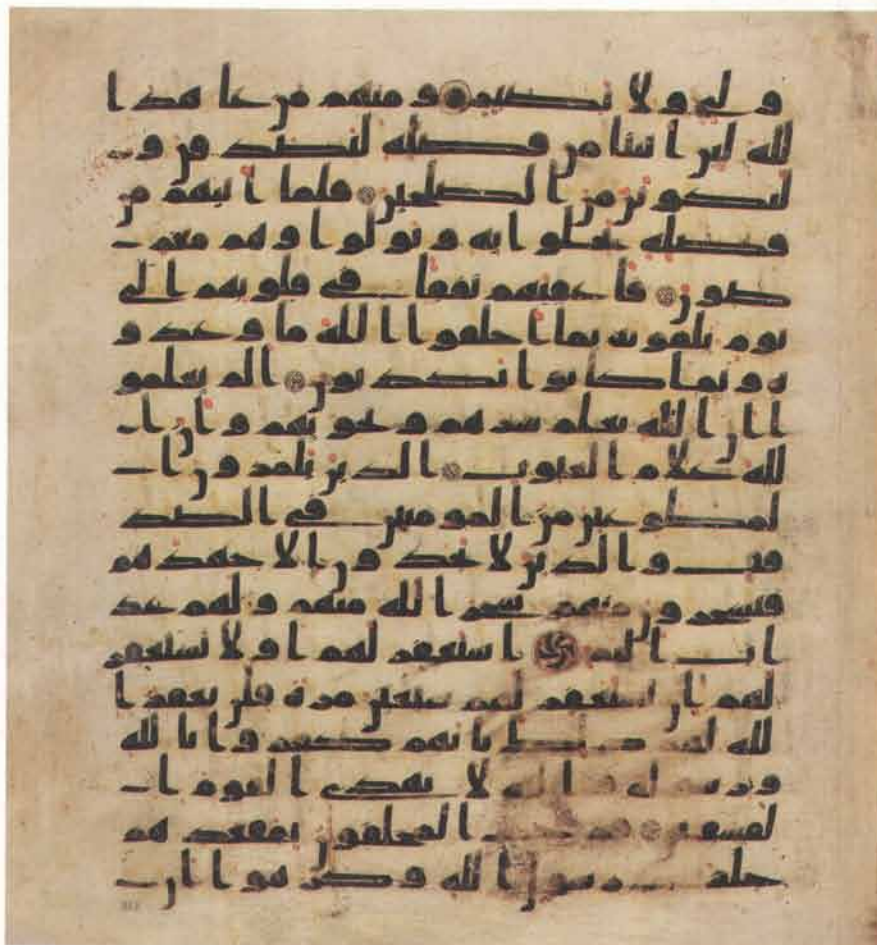 ولي ولا نصير ومنهم من عاهد ا
لله لئن اتينا من فضله لنصدقن و
لنكونن من الصلحين فلما اتيهم من
فضله بخلوا به وتولوا وهم معر
ضون فاعقبهم نفاقا في قلوبهم الى
يوم يلقونه بما اخلفوا الله ما وعدو
ه وبما كانوا يكذبون الم يعلمو
ا ان الله يعلم سرهم ونجويهم وان ا
لله علام الغيوب الذين يلمزون ا
لمطوعين من المومنين في الصد
قت والذين لا يجدون الا جهدهم
فيسخرون منهم سخر الله منهم ولهم عذ
اب اليم استغفر لهم او لا تستغفر
لهم ان تستغفر لهم سبعين مرة فلن يغفر ا
لله لهم ذلك بانهم كفروا بالله
ورسوله والله لا يهدي القوم ا
لفسقين فرح المخلفون بمقعدهم
خلف رسول الله وكرهوا ان